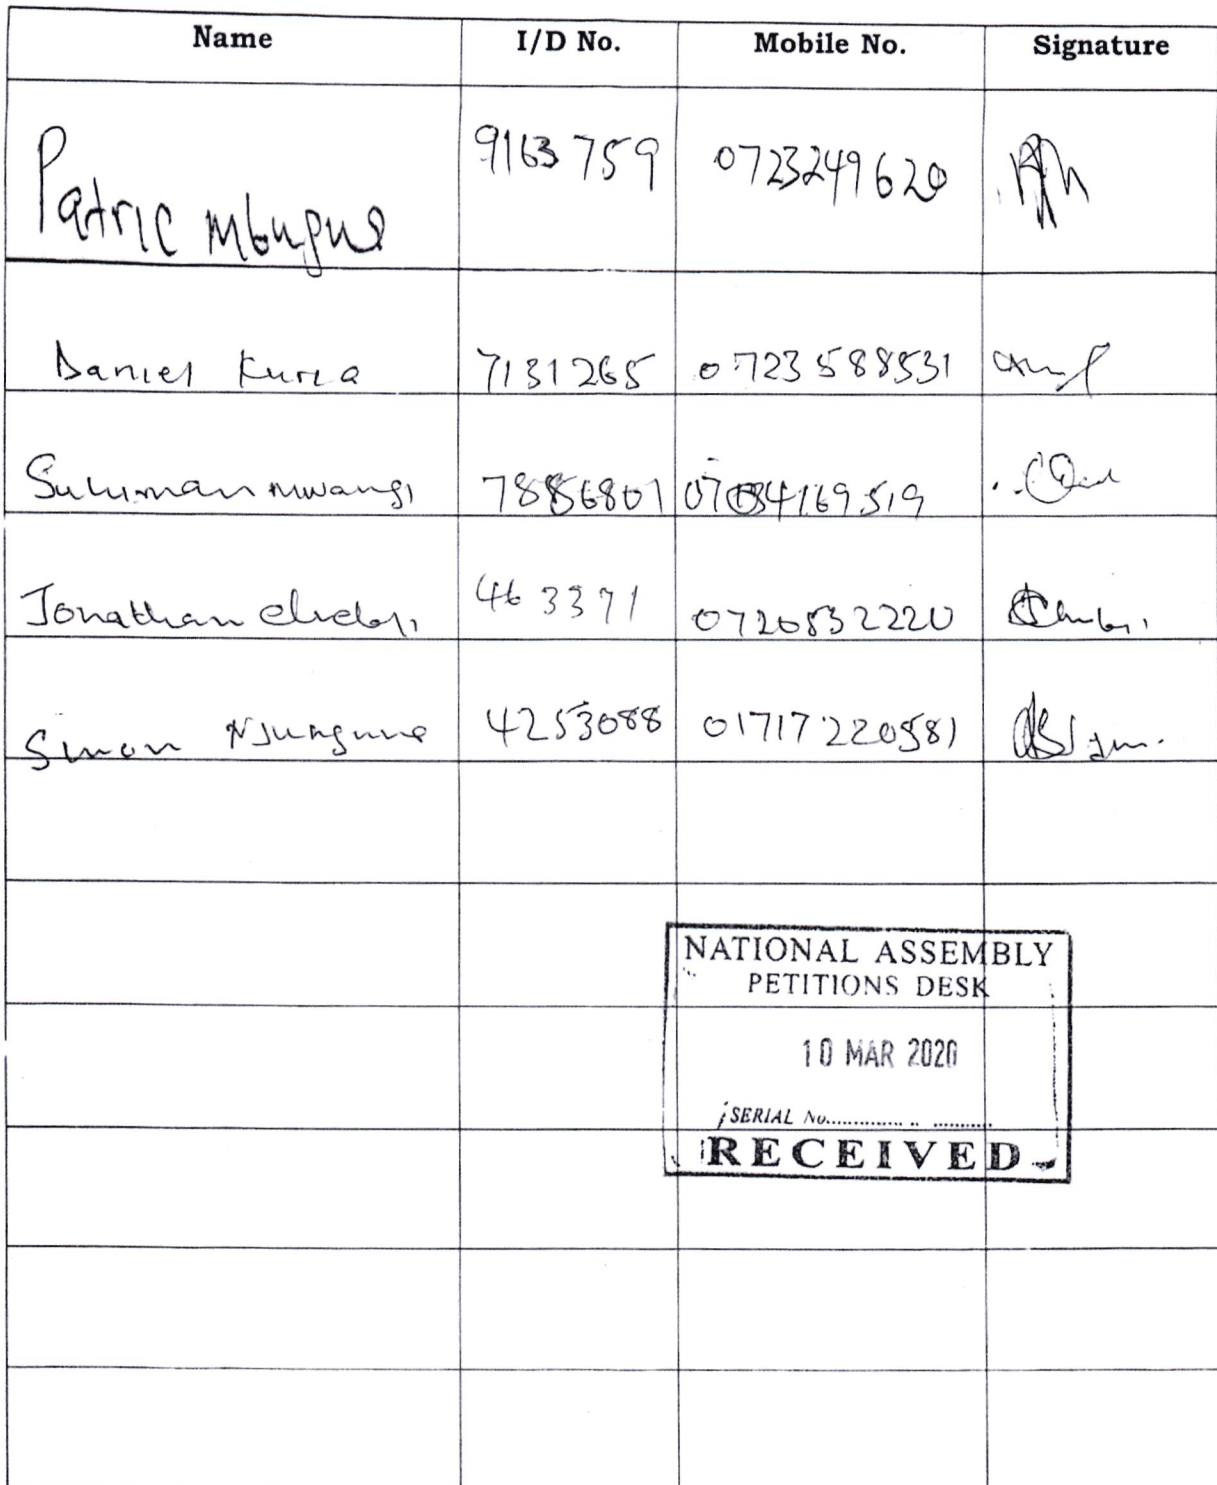 Name I/D No. Mobile No. Signature
Patric Mbugua 9163759 0723249620
Daniel Kuria 7131265 0723588531
Suliman Mwangi 7886801
Jonathan 463371 0720832220
Simon Njunguna 4253088 01717220581
NATIONAL ASSEMBLY
PETITIONS DESK
10 MAR 2020
SERIAL No..............................
RECEIVED